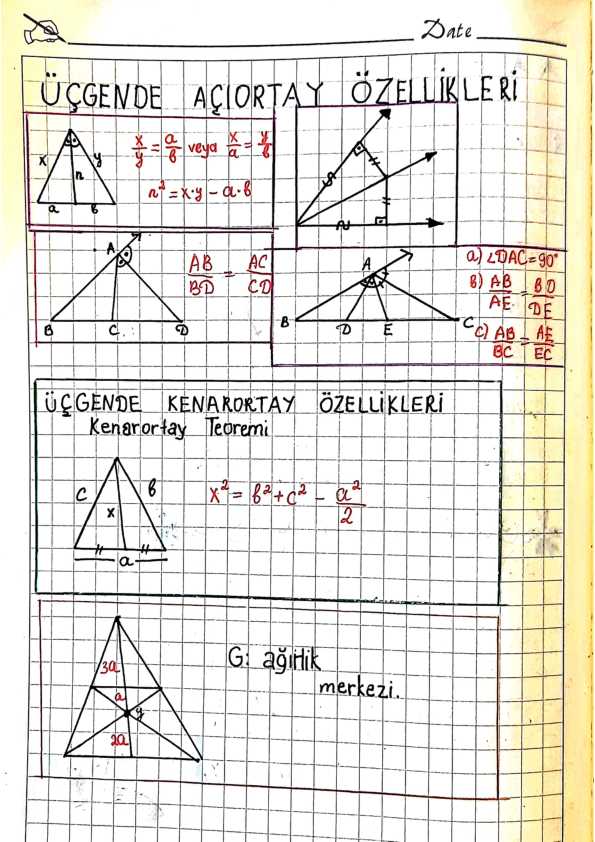 Date
ÜÇGENDE AÇIORTAY ÖZELLİKLERİ
x y n a b
x/y = a/b veya x/a = y/b
n² = x·y - a·b
A B C D
AB/BD = AC/CD
A B D E C
a) ∠DAC = 90°
b) AB/AE = BD/DE
c) AB/BC = AE/EC
ÜÇGENDE KENARORTAY ÖZELLİKLERİ
Kenarortay Teoremi
c b x a
x² = b² + c² - a²/2
3a
a y
2a
G: ağırlık
merkezi.